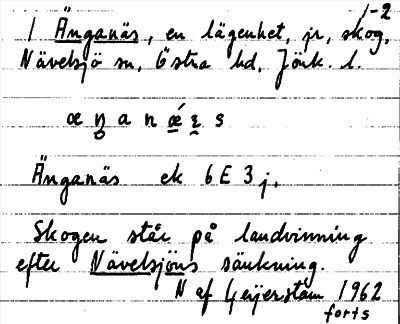 1-2
1 Änganäs, en lägenhet, jr, skog,
Nävelsjö sn, Östra hd, Jönk. l.
æ ŋ a n ǽ ε s
Änganäs ek 6E3j.
Skogen står på landvinning
efter Nävelsjöns sänkning.
N af Geijerstam 1962
forts